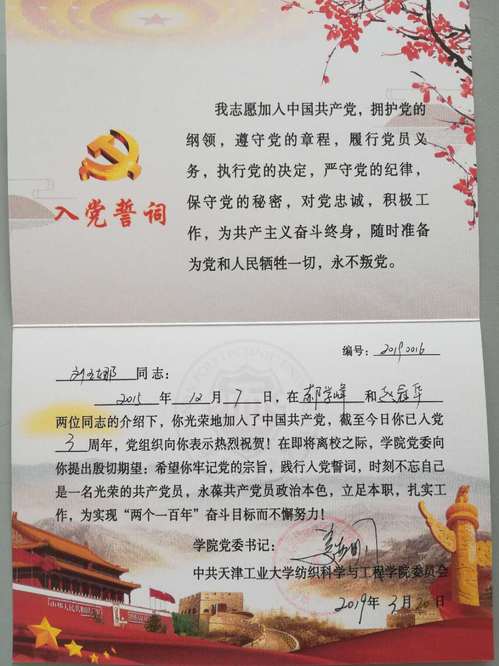 我志愿加入中国共产党，拥护党的
纲领，遵守党的章程，履行党员义
务，执行党的决定，严守党的纪律，
保守党的秘密，对党忠诚，积极工
作，为共产主义奋斗终身，随时准备
为党和人民牺牲一切，永不叛党。
入党誓词
编号：20190016
同志：
2015 年 12 月 7 日，在 和
两位同志的介绍下，你光荣地加入了中国共产党，截至今日你已入党
3 周年，党组织向你表示热烈祝贺！在即将离校之际，学院党委向
你提出殷切期望：希望你牢记党的宗旨，践行入党誓词，时刻不忘自己
是一名光荣的共产党员，永葆共产党员政治本色，立足本职，扎实工
作，为实现“两个一百年”奋斗目标而不懈努力！
学院党委书记：
中共天津工业大学纺织科学与工程学院委员会
2019年 3月20日